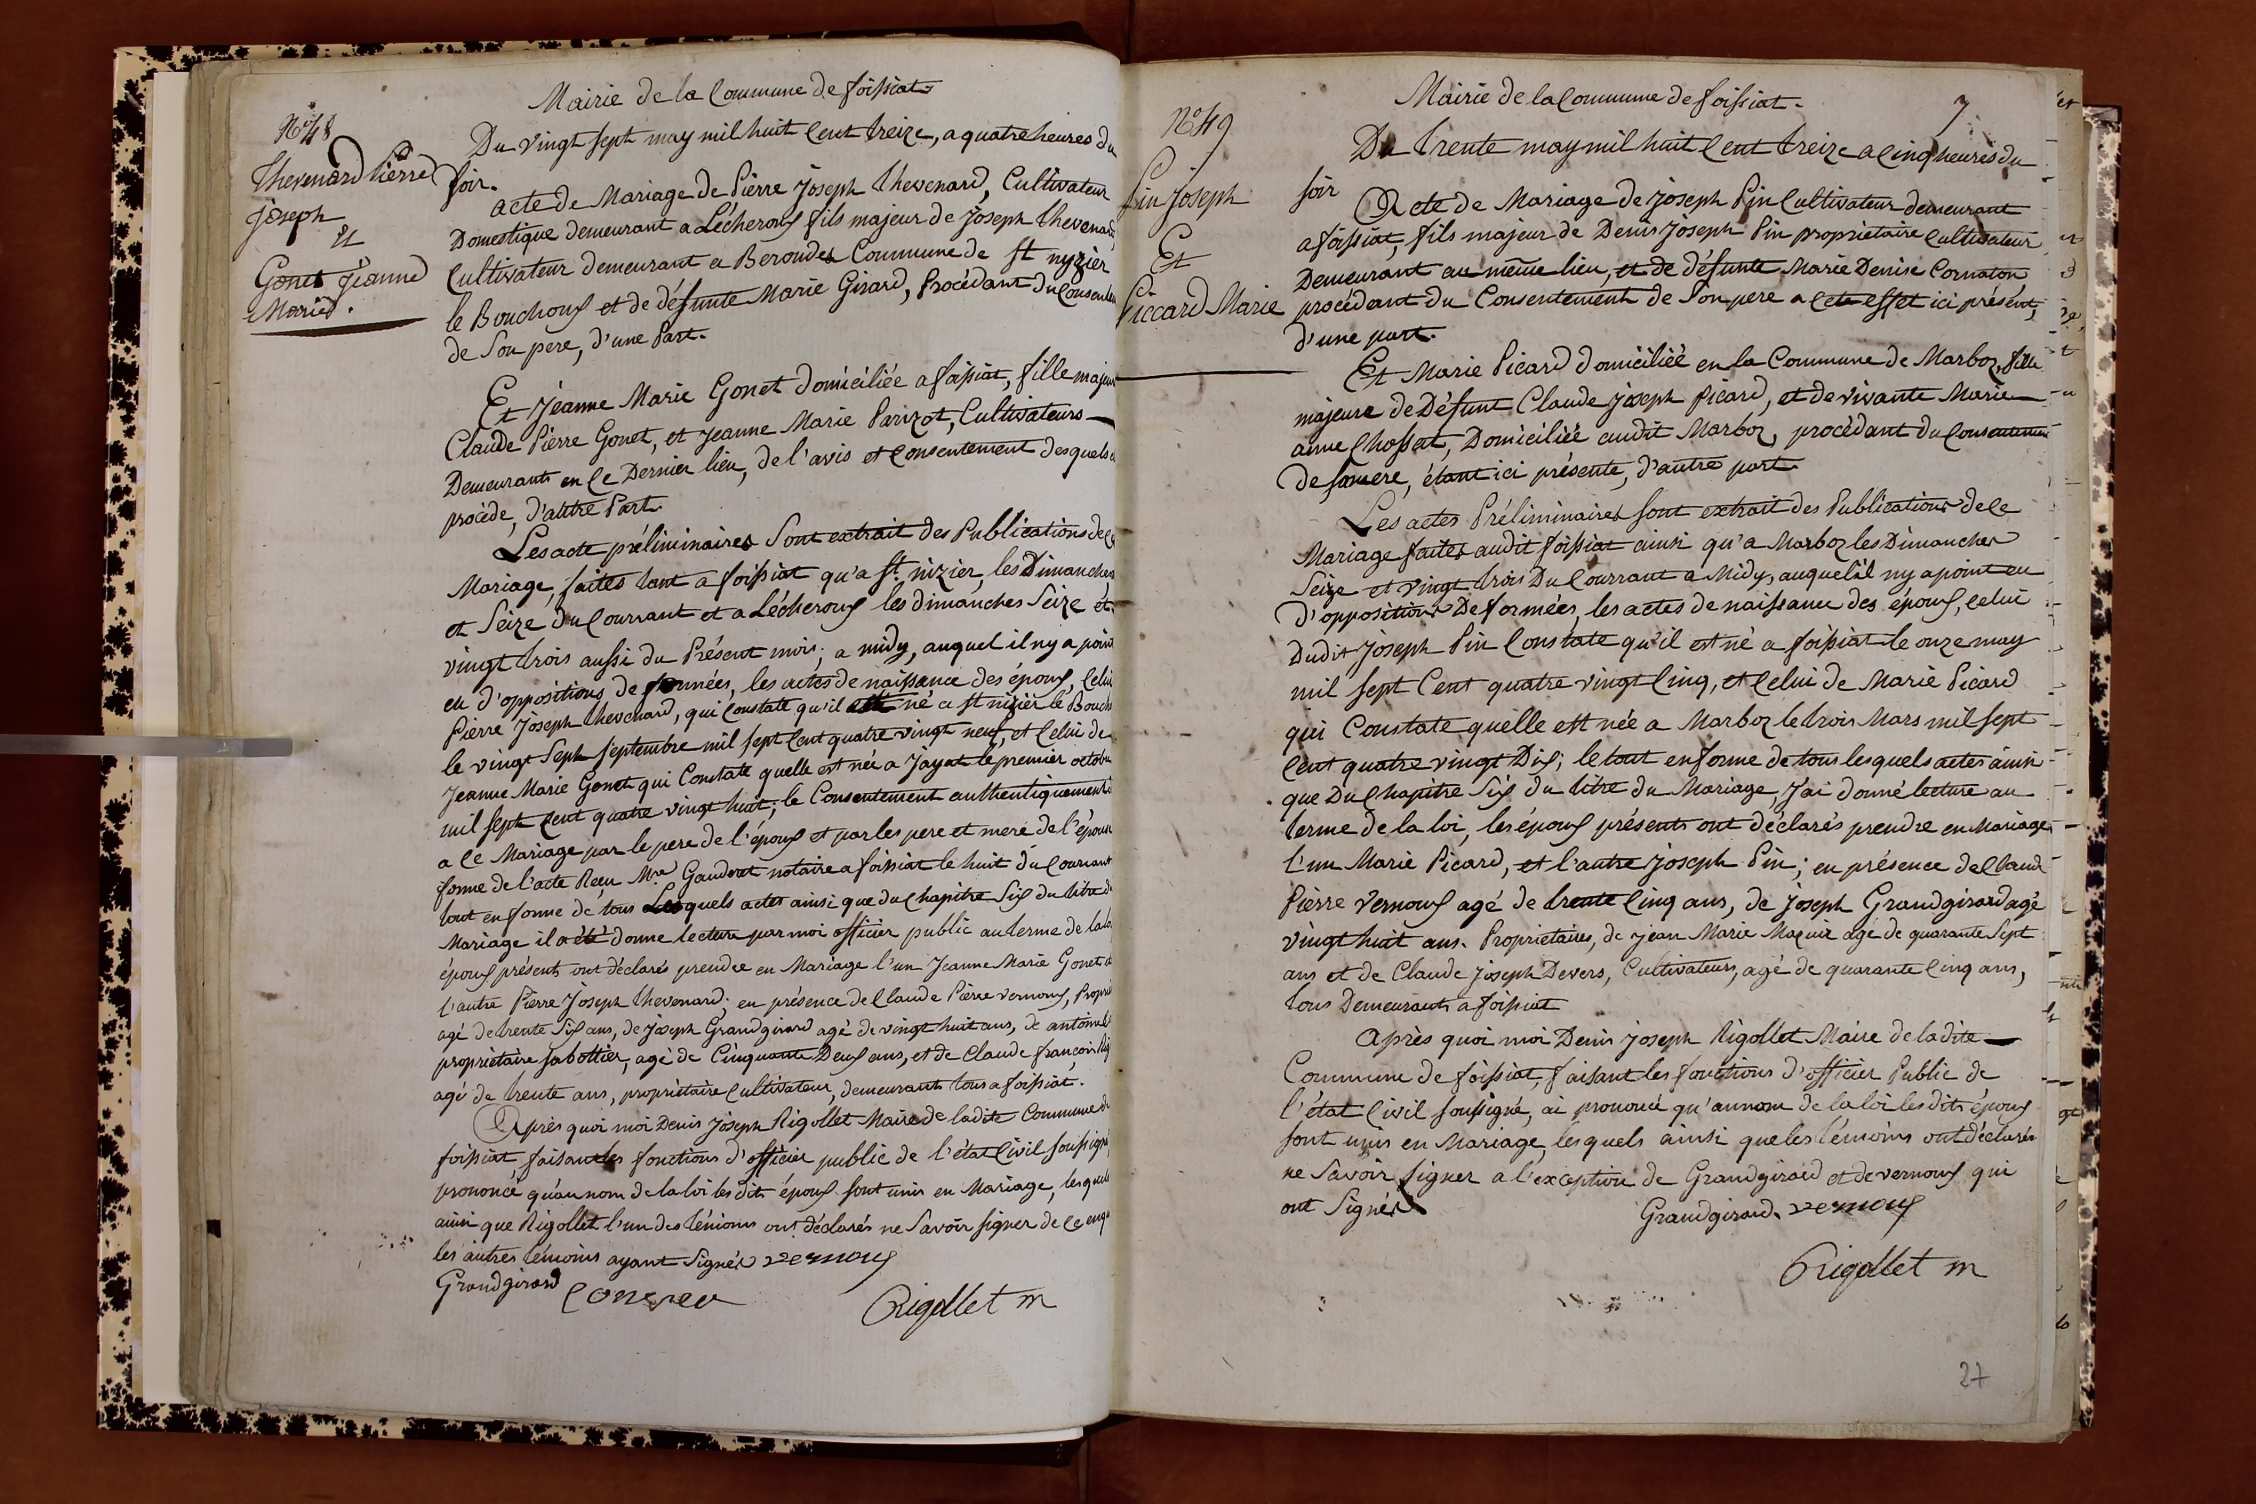 Mairie de la Commune de foissiat
N° 48
Thevenard Pierre
Joseph
Et
Gonet Jéanne
Marie.
Du vingt sept may mil huit Cent treize, a quatre heures du
soir.
acte de Mariage de Pierre Joseph thevenard, Cultivateur
Domestique demeurant a Lécheroux fils majeur de Joseph thevenard,
Cultivateur demeurant a Beroudes Commune de St nyzier
le Bouchoux et de défunte Marie Girard, Procédant du Consente
de Son pere, d'une Part.
Et Jéanne Marie Gonet domiciliée a foissiat, fille majeure
Claude Pierre Gonet, et Jeanne Marie Parizot, Cultivateurs
Demeurants en Ce Dernier lieu, de l'avis et Consentement desquels
procède, d'autre Part.
Les acte préliminaires Sont extrait des Publications de Ce
Mariage, faites tant a foissiat qu'a St nizier, les Dimanches
et Seize du Courrant et a Lécheroux les dimanches Seize et
vingt trois aussi du Présent mois, a midy, auquel il ny a point
eu d'oppositions de formées, les actes de naissance des époux, Celui
Pierre Joseph thevenard, qui Constate qu'il est né a St nizier le Bouch
le vingt Sept Septembre mil sept Cent quatre vingt neuf, et Celui de
Jeanne Marie Gonet qui Constate quelle est née a Jayat le premier octobre
mil sept Cent quatre vingt huit; le Consentement authentiquement
a Ce Mariage par le pere de l'époux et par les pere et mere de l'épouse
forme de l'acte Recu Me Gaudrat notaire a foissiat le huit du Courrant
tout en forme de tous Lesquels actes ainsi que du Chapitre Six du titre du
Mariage il a été donne lecture par moi officier public au terme de la loi
époux présents ont déclarés prendre en Mariage l'un Jeanne Marie Gonet et
l'autre Pierre Joseph thevenard; en présence de Claude Pierre Vernoux, Propri
agé de trente Six ans, de Joseph Grandgirard agé de vingt huit ans, de antoine
propriétaire Sabottier, agé de Cinquante Deux ans, et de Claude françois Rig
agé de trente ans, propriètaire Cultivateur, demeurants tous a foissiat.
Après quoi moi Denis Joseph Rigollet Maire de la dite Commune de
foissiat, faisant les fonctions d'officier public de l'état Civil Soussigné,
prononcé qu'au nom de la loi les dits époux sont unis en Mariage, lesquels
ainsi que Rigollet l'un des témoins ont déclarés ne Savoir signer de Ce enqu
les autres témoins ayant Signés Vernoux
Grandgirard
Rigollet m
Mairie de la Commune de foissiat.
7
N° 49
Pin Joseph
Et
Piccard Marie
Du trente may mil huit Cent treize a Cinq heures du
soir
Acte de Mariage de Joseph Pin Cultivateur demeurant
a foissiat, fils majeur de Denis Joseph Pin propriétaire Cultivateur
Demeurant au même lieu, et de défunte Marie Denise Cornaton
procédant du Consentement de Son pere a Cete effet ici présent,
d'une part.
Et Marie Picard domiciliée en la Commune de Marboz, fille
majeure de Défunt Claude Joseph Picard, et de vivante Marie
anne Chossat, Domiciliée audit Marboz, procèdant du Consentement
de Sa mere, étant ici présente, d'autre part.
Les actes Préliminaires sont extrait des Publications de Ce
Mariage faites audit foissiat ainsi qu'a Marboz les Dimanches
Seize et vingt trois Du Courrant a Midy, auquel il ny a point eu
d'oppositions De formées, les actes de naissance des époux, Celui
Dudit Joseph Pin Constate qu'il est né a foissiat le onze may
mil sept Cent quatre vingt Cinq, et Celui de Marie Picard
qui Constate quelle est née a Marboz le trois Mars mil sept
Cent quatre vingt Dix; le tout en forme de tous lesquels actes ainsi
que Du Chapitre Six du titre du Mariage, J'ai donné lecture au
terme de la loi, les époux présents ont déclarés prendre en Mariage
l'un Marie Picard, et l'autre Joseph Pin; en présence de Claude
Pierre Vernoux agé de trente Cinq ans, de Joseph Grandgirard agé
vingt huit ans. Propriètaires, de Jean Marie Maquir agé de quarante Sept
ans et de Claude Joseph Devers, Cultivateurs, agé de quarante Cinq ans,
tous Demeurants a foissiat
Après quoi moi Denis Joseph Rigollet Maire de la dite
Commune de foissiat, faisant les fonctions d'officier Public de
l'état Civil soussigné, ai prononcé qu'au nom de la loi les dits époux
sont unis en Mariage, lesquels ainsi que les témoins ont déclarés
ne Savoir signer a l'exception de Grandgirard et de Vernoux qui
ont Signés
Grandgirard. Vernoux
Rigollet m
27